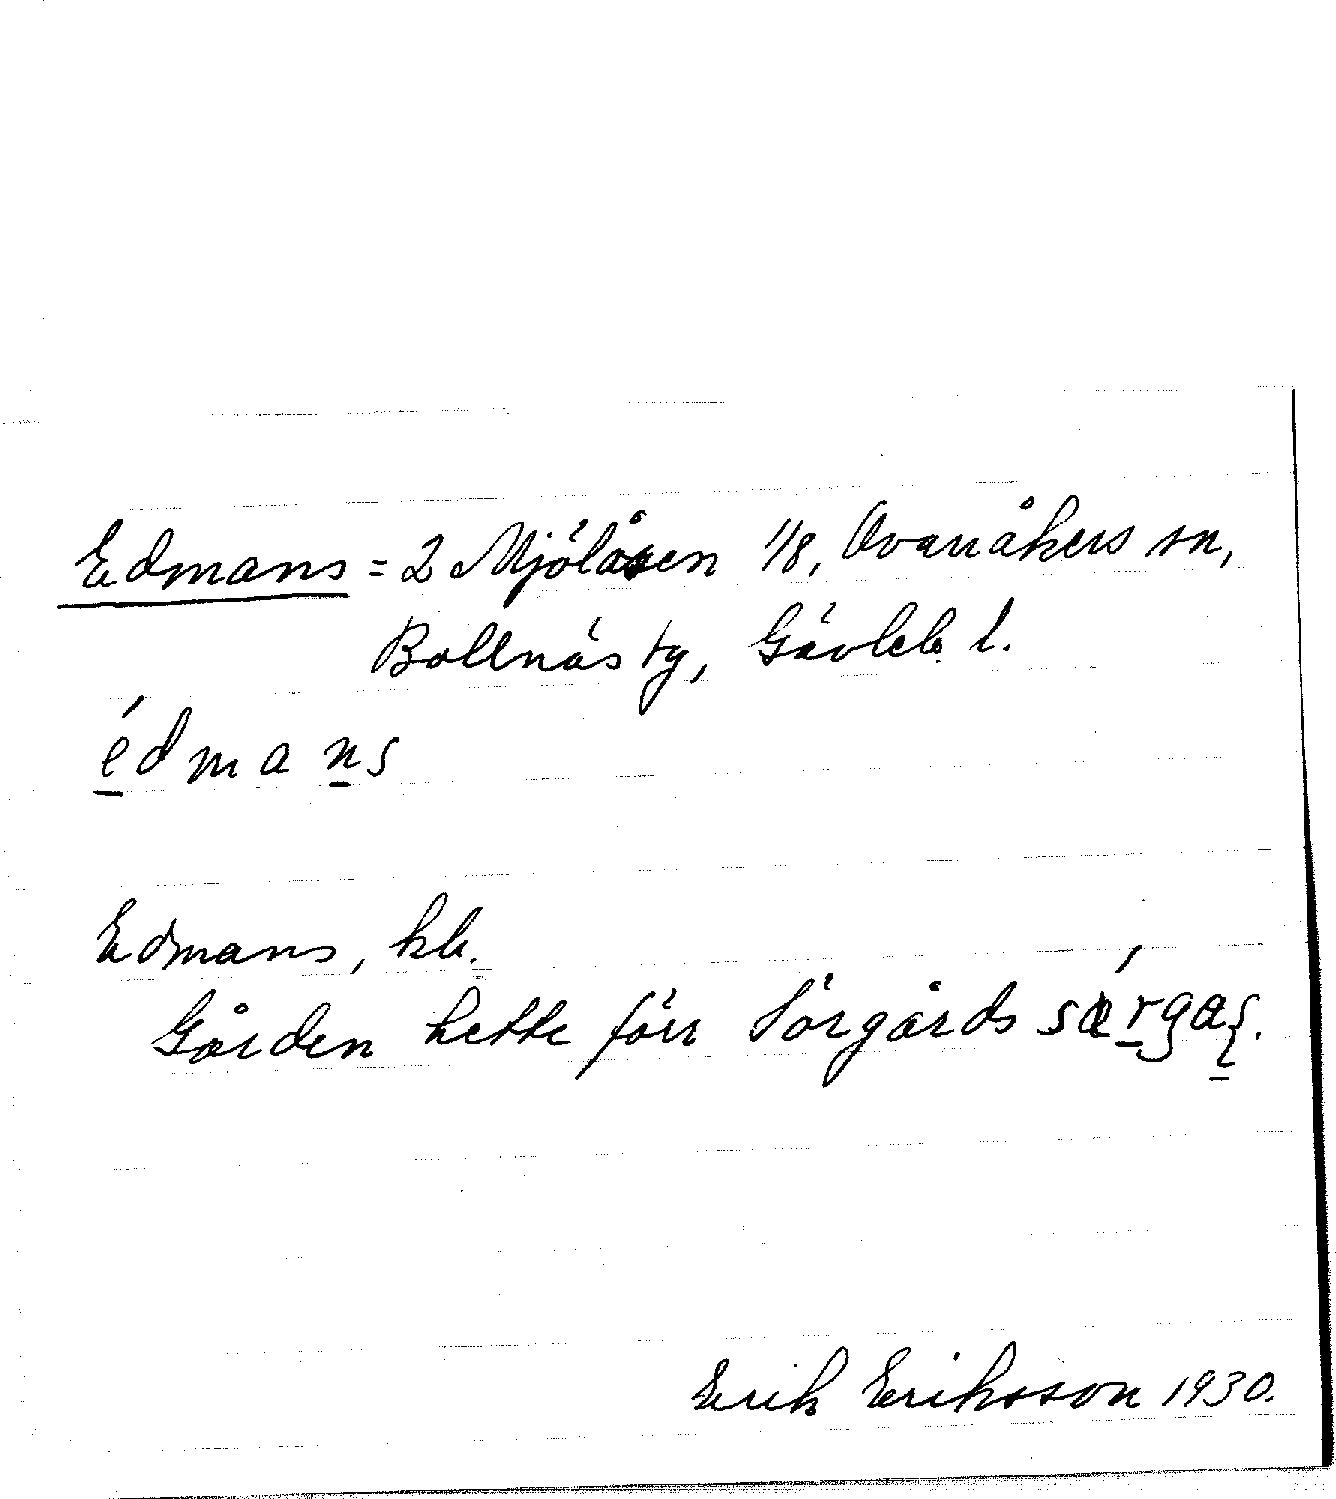 Edmans = 2 Mjölåsen 1/8, Ovanåkers sn,
Bollnäs tg, Gävleb. l.
édmans
Edmans, kb.
Gården hette förr Sörgårds
Erik Eriksson 1930.